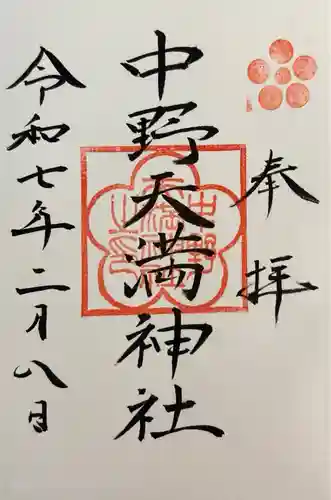 奉拝
中野天満神社
令和七年二月八日